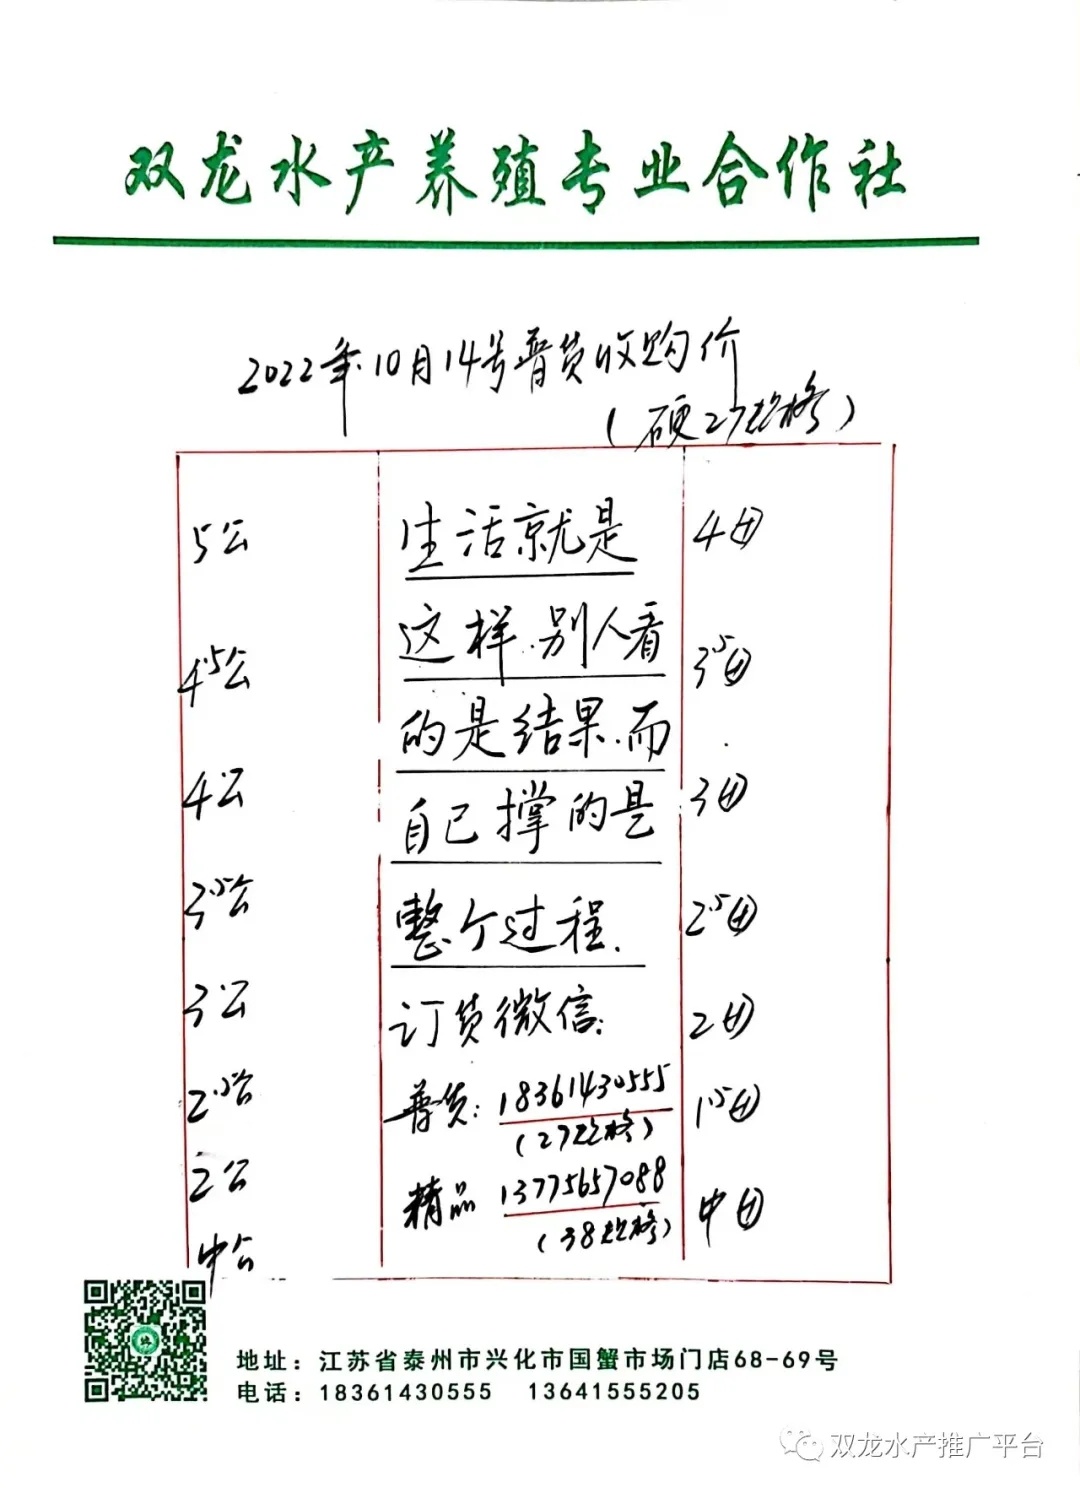 双龙水产养殖专业合作社
2022年10月14号普货收购价
(硬27规格)
5公
生活就是
4团
4.5公
这样.别人看
3.5团
的是结果.而
4公
自己撑的是
3团
3.5公
整个过程.
2.5团
3公
订货微信:
2团
2.5公
普货: 18361430555
1.5团
(27规格)
2公
精品 13775657088
中团
(38规格)
中公
地址：江苏省泰州市兴化市国蟹市场门店68-69号
电话：18361430555 13641555205
双龙水产推广平台